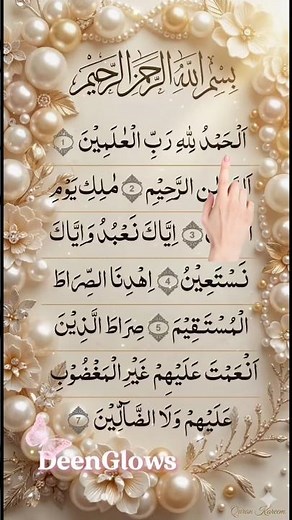 بِسْمِ اللهِ الرَّحْمٰنِ الرَّحِيْمِ
اَلْحَمْدُ لِلّٰهِ رَبِّ الْعٰلَمِيْنَ ١
الرَّحِيْمِ ٢ مٰلِكِ يَوْمِ
٣ اِيَّاكَ نَعْبُدُ وَاِيَّاكَ
نَسْتَعِيْنُ ٤ اِهْدِنَا الصِّرَاطَ
الْمُسْتَقِيْمَ ٥ صِرَاطَ الَّذِيْنَ
اَنْعَمْتَ عَلَيْهِمْ غَيْرِ الْمَغْضُوْبِ
عَلَيْهِمْ وَلَا الضَّآلِّيْنَ ٧
DeenGlows
Quran Kareem